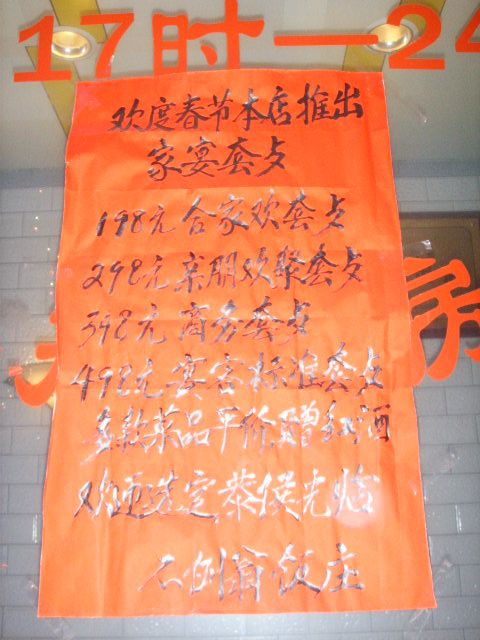 17时一24
欢度春节本店推出
家宴套歺
198元合家欢套歺
298元亲朋欢聚套歺
398元商务套歺
498元宴客标准套歺
多款菜品平价赠红酒
欢迎选定恭候光临
不倒翁饭庄